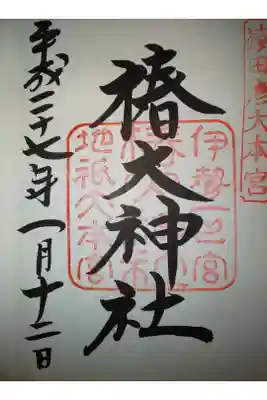 猿田彦大本宮
伊勢一之宮
地祇大本宮
椿大神社
平成二十七年一月十二日